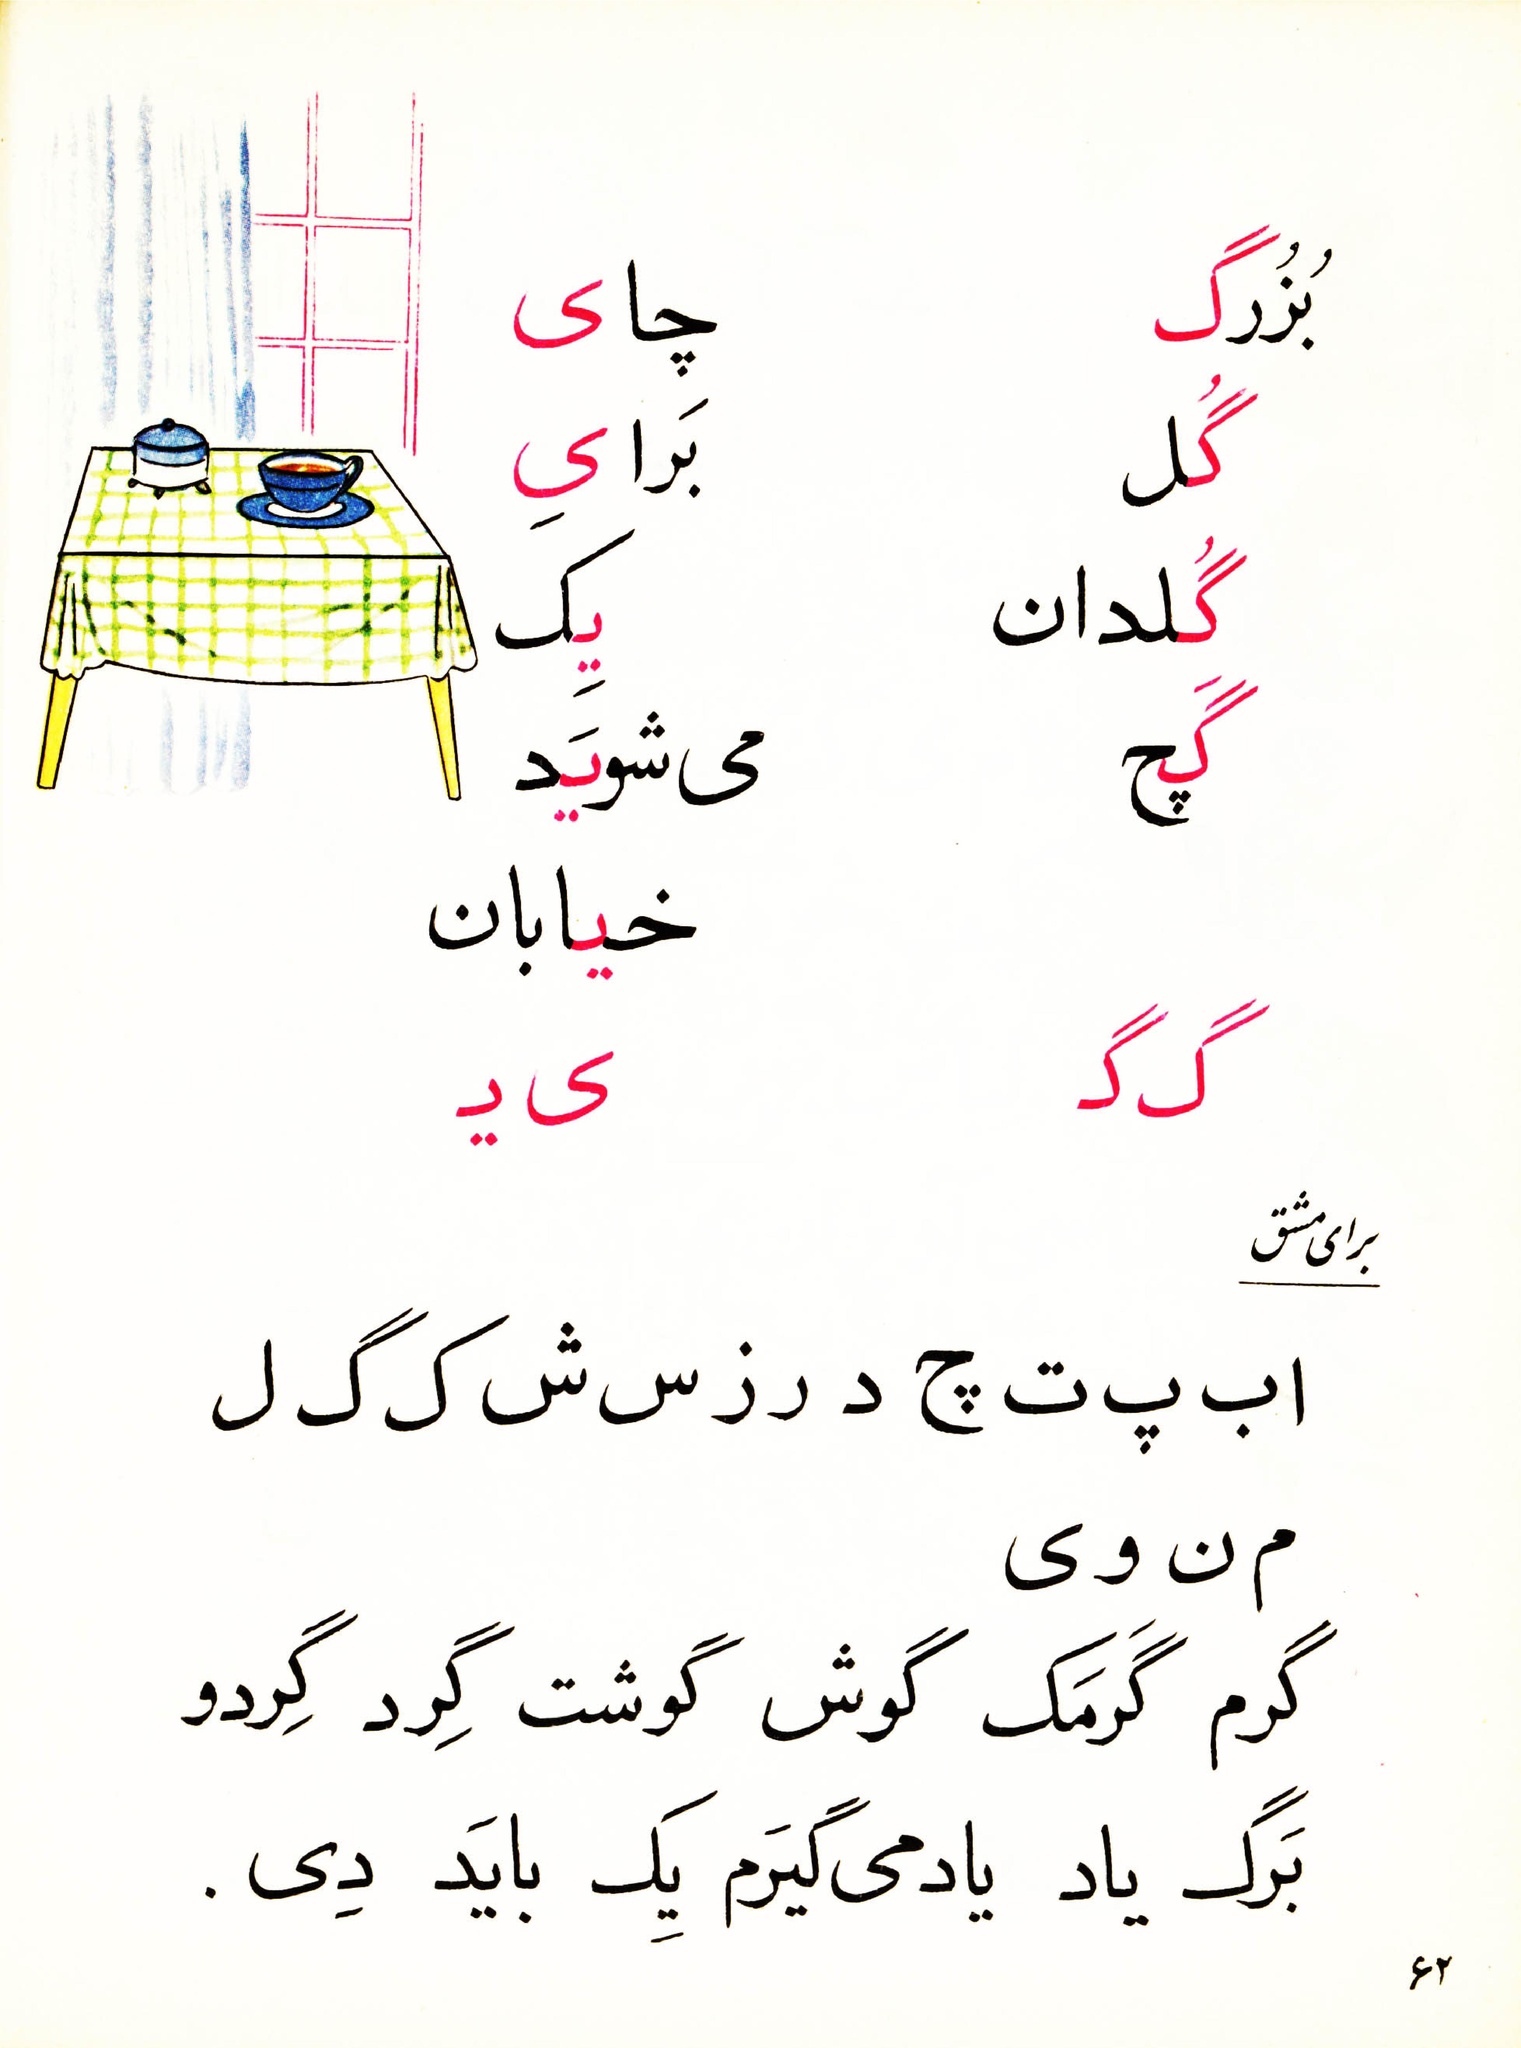 بُزُرگ
گُل
گُلدان
گَچ
گ گـ
چای
بَرایِ
یِک
می‌شویَد
خیابان
ی یـ
برای مشق
ا ب پ ت چ د ر ز س ش ک گ ل
م ن و ی
گرم گَرمَک گوش گوشت گِرد گِردو
بَرگ یاد یاد می‌گیرَم یِک بایَد دِی .
۶۲